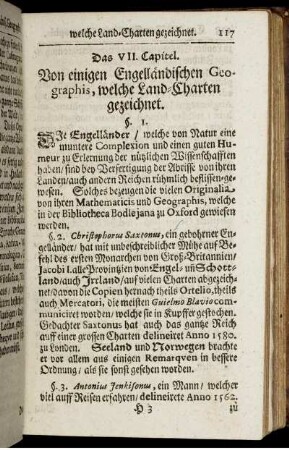 welche Land-Charten gezeichnet. 117
Das VII. Capitel.
Von einigen Engelländischen Geo-
graphis, welche Land-Charten
gezeichnet.
§. 1.
DJe Engelländer / welche von Natur eine
muntere Complexion und einen guten Hu-
meur zu Erlernung der nützlichen Wissenschafften
haben / sind bey Verfertigung der Abrisse von ihren
Landen / auch andern Reichen rühmlich beflissen ge-
wesen. Solches bezeugen die vielen Originalia
von ihren Mathematicis und Geographis, welche
in der Bibliotheca Bodlejana zu Oxford gewiesen
werden.
§. 2. Christophorus Saxtonus, ein gebohrner En-
gelländer / hat mit unbeschreiblicher Mühe auf Be-
fehl des ersten Monarchen von Groß-Britannien /
Jacobi I. alle Provintzien von Engel- uñ Schott-
land / auch Jrrland / auf vielen Charten abgezeich-
net / davon die Copien hernach theils Ortelio, theils
auch Mercatori, die meisten Guielmo Blavio com-
municiret worden / welche sie in Kupffer gestochen.
Gedachter Saxtonus hat auch das gantze Reich
auff einer grossen Charten delineiret Anno 1580.
zu Londen. Seeland und Norwegen brachte
er vor allem aus einigen Remarqven in bessere
Ordnung / als sie sonst gesehen worden.
§. 3. Antonius Jenkisonus, ein Mann / welcher
viel auff Reisen erfahren / delineirete Anno 1562.
H 3 zu